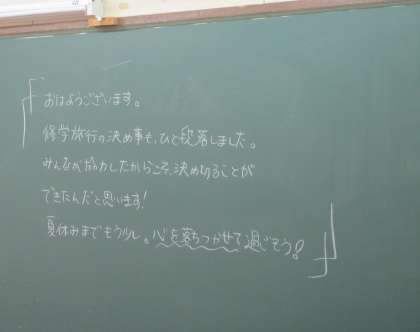 おはようございます。
修学旅行の決め事も、ひと段落しました。
みんなが協力したからこそ、決め切ることが
できたんだと思います!
夏休みまでもう少し。心を落ちつかせて過ごそう!